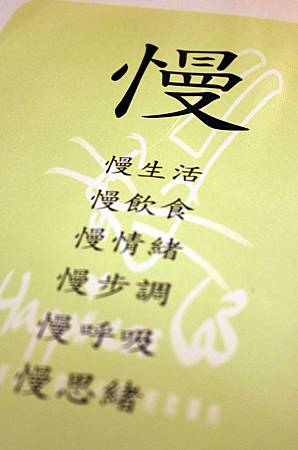 慢
慢生活
慢飲食
慢情緒
慢步調
慢呼吸
慢思緒